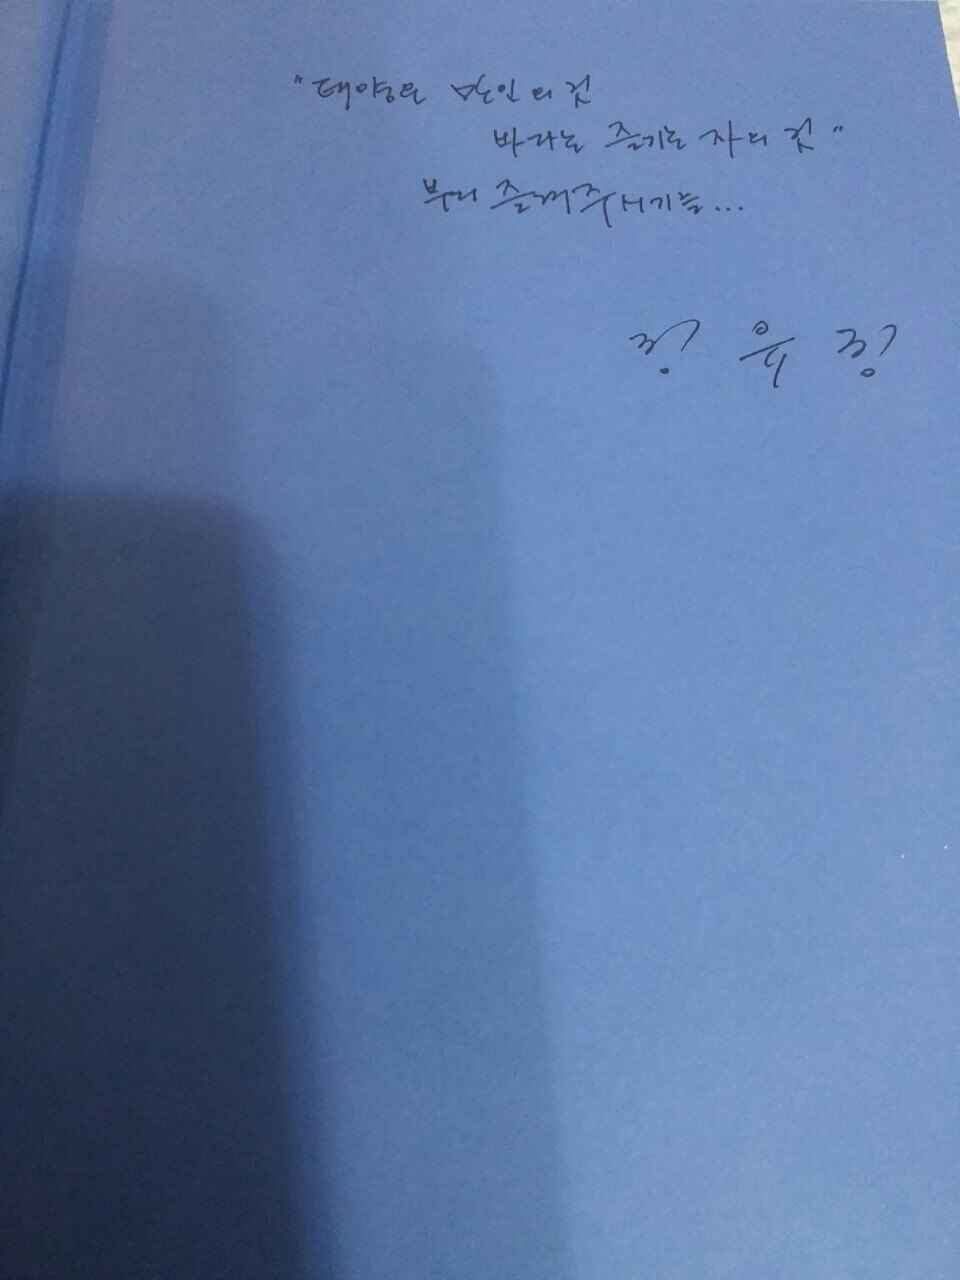 "태양은 만인의 것
바다는 즐기는 자의 것"
부디 즐겨주시기를...
정유정